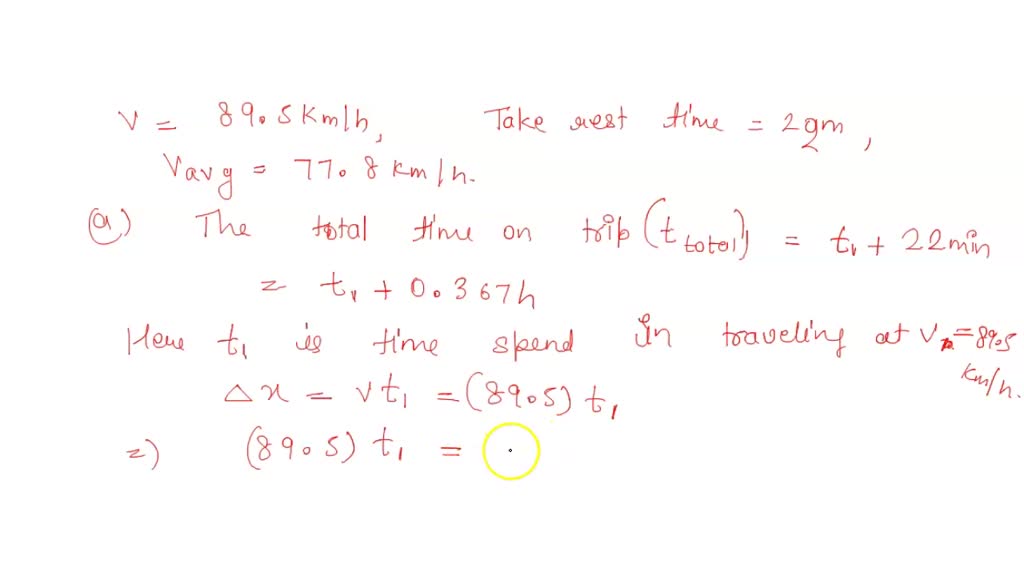 V = 89.5 Km/h, Take rest time = 22m,
Vavg = 77.8 km/h.
(a) The total time on trip (t total) = t1 + 22min
= t1 + 0.367h
Here t1 is time spend in traveling at V = 89.5 km/h.
Δx = vt1 = (89.5) t1
=) (89.5) t1 =